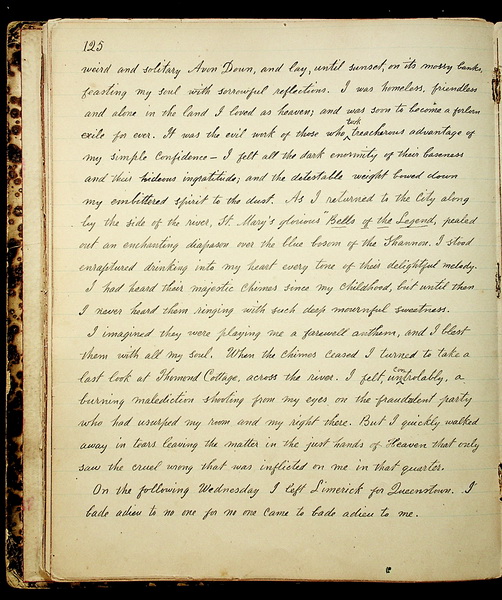 125
weird and solitary Avon Down, and lay, until sunset, on its mossy banks,
feasting my soul with sorrowful reflections. I was homeless, friendless
and alone in the land I loved as heaven; and was soon to become a forlorn
exile for ever. It was the evil work of those who took treacherous advantage of
my simple confidence – I felt all the dark enormity of their baseness
and their hideous ingratitude; and the detestable weight bowed down
my embittered spirit to the dust. As I returned to the City along
by the side of the river, St. Mary's glorious "Bells of the Legend, pealed
out an enchanting diapason over the blue bosom of the Shannon. I stood
enraptured drinking into my heart every tone of their delightful melody.
I had heard their majestic Chimes since my Childhood, but until then
I never heard them ringing with such deep mournful sweetness.
I imagined they were playing me a farewell anthem, and I blest
them with all my soul. When the Chimes ceased I turned to take a
last look at Thomond Cottage, across the river. I felt, uncontrolably, a
burning malediction shooting from my eyes on the fraudulent party
who had usurped my room and my right there. But I quickly walked
away in tears leaving the matter in the just hands of Heaven that only
saw the cruel wrong that was inflicted on me in that quarter.
On the following Wednesday I left Limerick for Queenstown. I
bade adieu to no one for no one came to bade adieu to me.